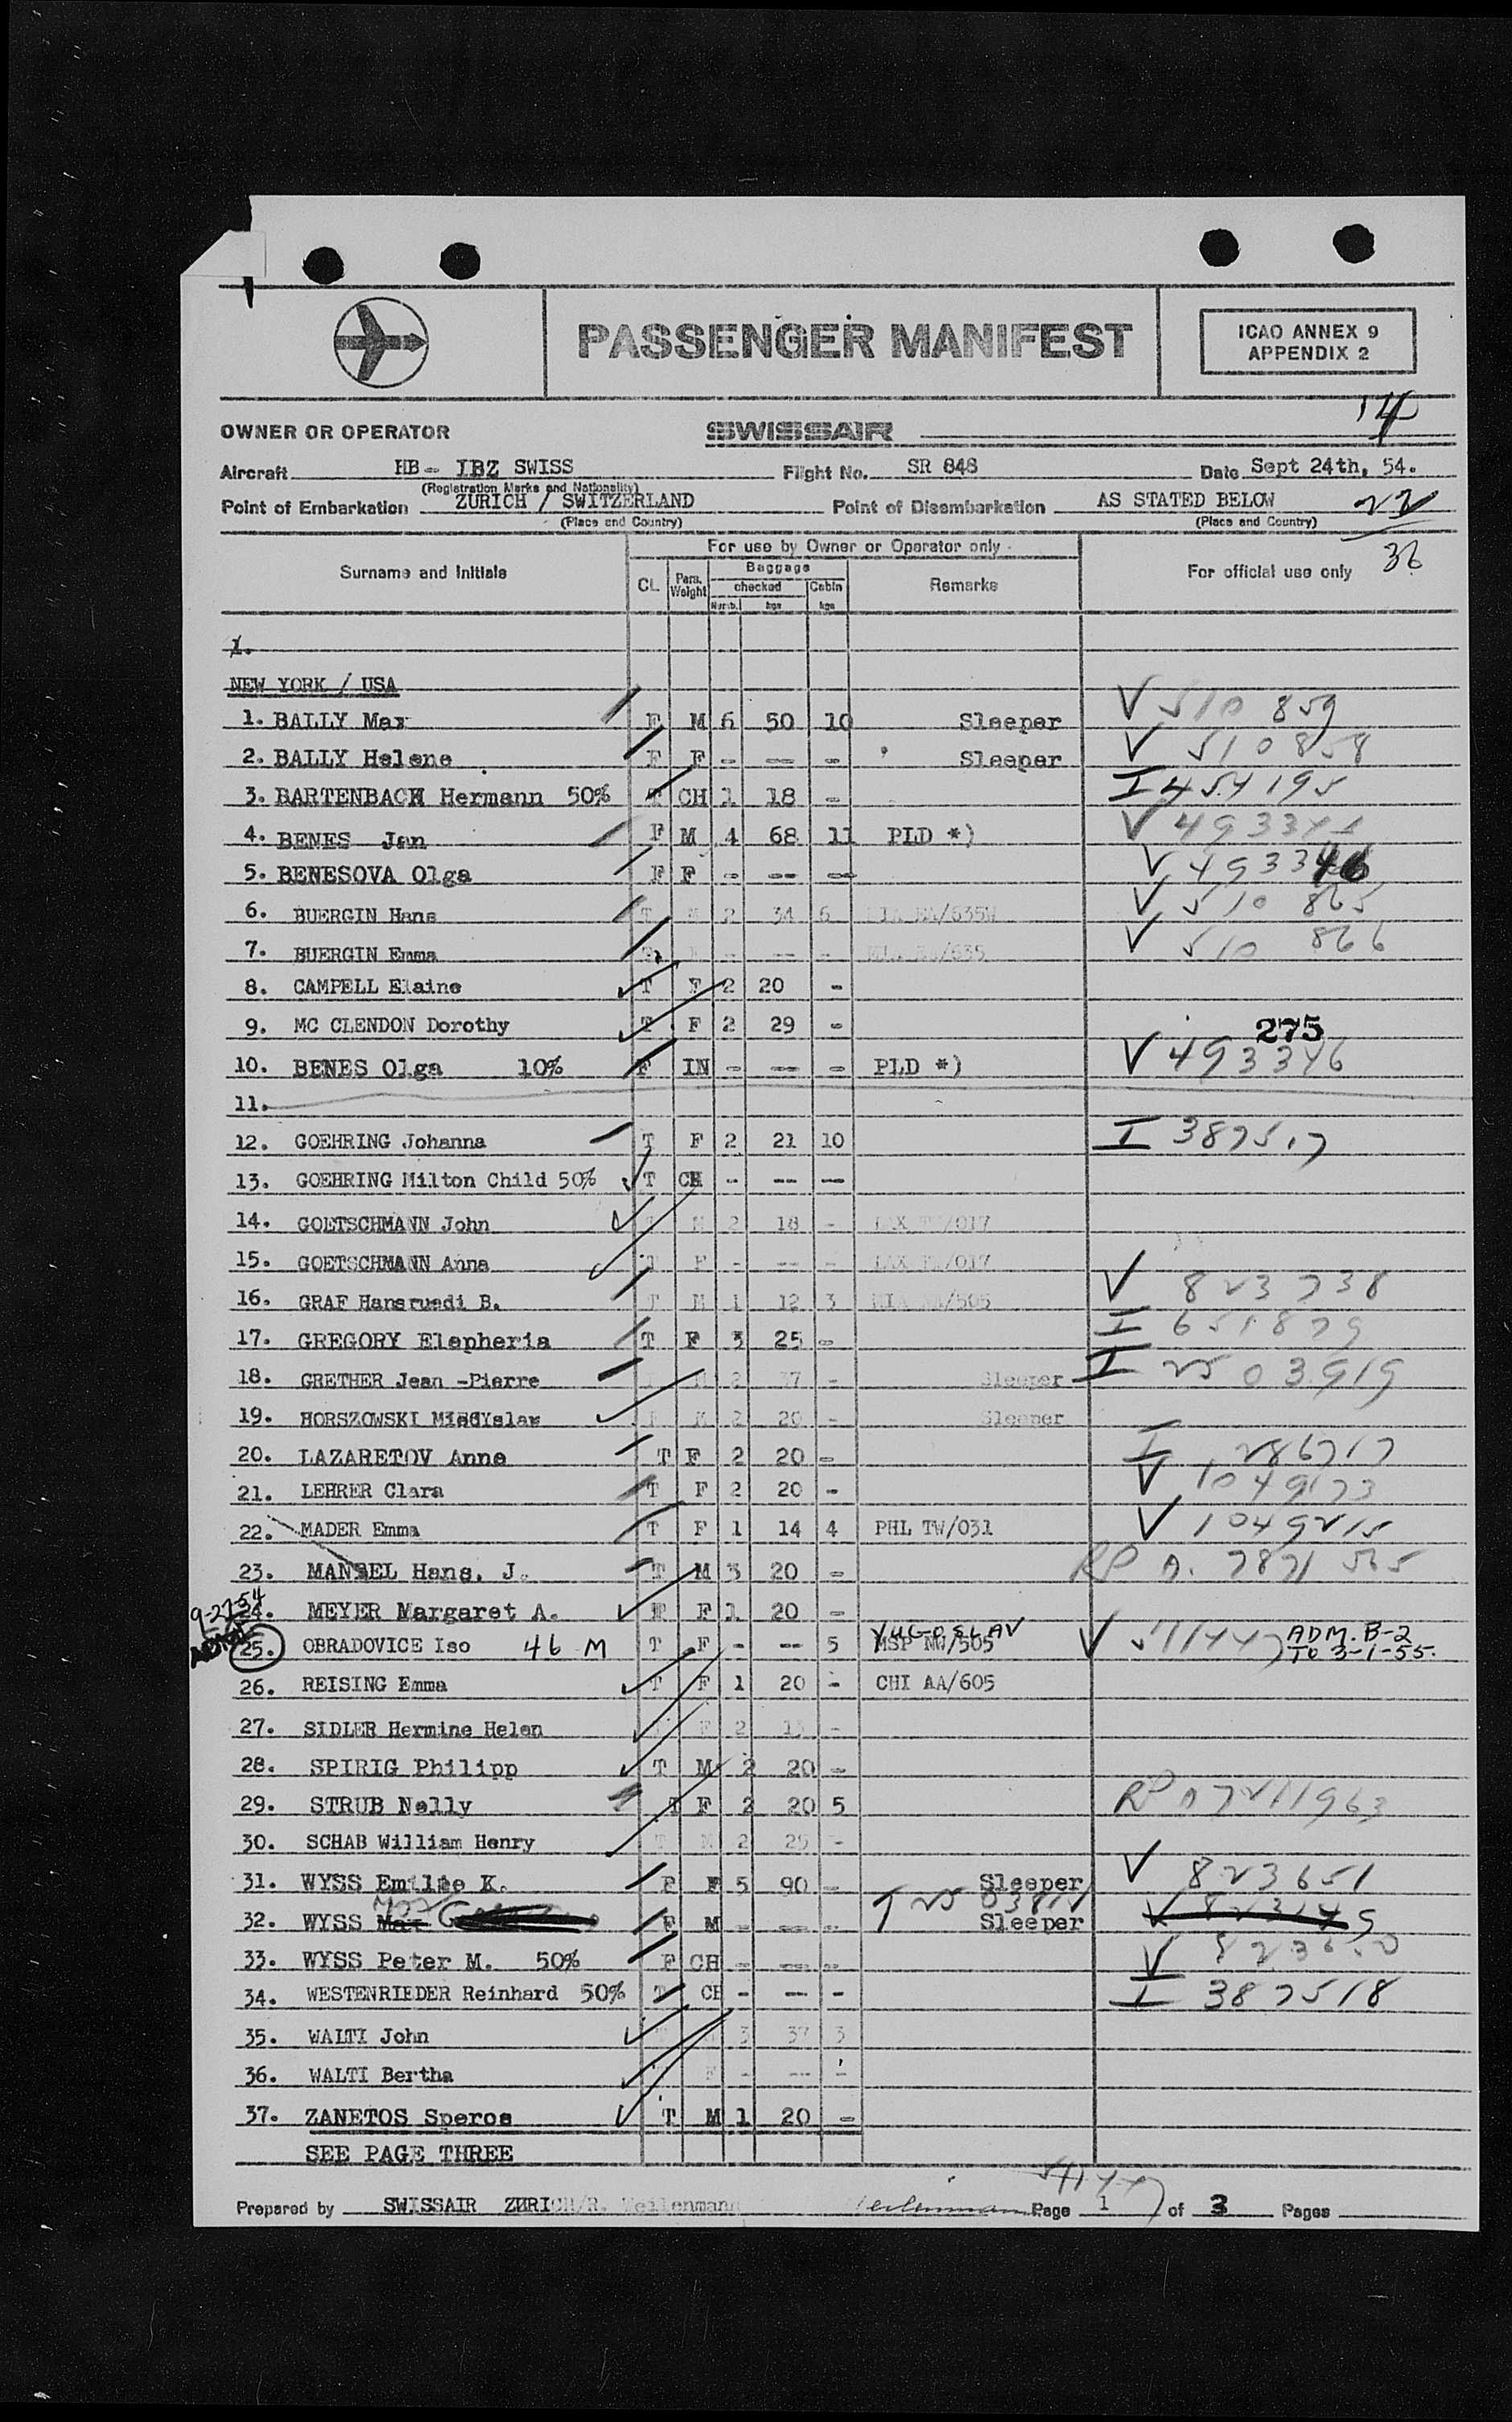 PASSENGER MANIFEST
ICAO ANNEX 9
APPENDIX 2
14
OWNER OR OPERATOR SWISSAIR
Aircraft HB - IBZ SWISS Flight No. SR 848 Date Sept 24th, 54.
(Registration Marks and Nationality)
Point of Embarkation ZURICH / SWITZERLAND Point of Disembarkation AS STATED BELOW 22
(Place and Country) (Place and Country)
36
For use by Owner or Operator only
Surname and Initials CL. Pass. Weight Baggage checked Numb. kgs Cabin kgs Remarks For official use only
1.
NEW YORK / USA
1. BALLY Max F M 6 50 10 Sleeper V 510 859
2. BALLY Helene F F - -- - Sleeper V 510858
3. BARTENBACH Hermann 50% T CH 1 18 - I 454195
4. BENES Jan F M 4 68 11 PLD *) V
5. BENESOVA Olga F F - -- -- V 493346
6. BUERGIN Hans T M 2 34 6 MIA EA/635W V 510 865
7. BUERGIN Emma T F - -- - MIA EA/635 V 510 866
8. CAMPELL Elaine T F 2 20 -
9. MC CLENDON Dorothy T F 2 29 - 275
10. BENES Olga 10% F IN - -- - PLD *) V 493346
11.
12. GOEHRING Johanna T F 2 21 10 I 387517
13. GOEHRING Milton Child 50% T CH - -- --
14. GOETSCHMANN John T M 2 18 - LAX TW/017
15. GOETSCHMANN Anna T F - -- - LAX TW/017
16. GRAF Hansruedi B. T M 1 12 3 MIA NA/505 V 823738
17. GREGORY Elepheria T F 3 25 - I 651879
18. GRETHER Jean -Pierre M 2 37 - Sleeper I 2503919
19. HORSZOWSKI Miedyslaw M 2 20 - Sleeper
20. LAZARETOV Anne T F 2 20 - I 286717
21. LEHRER Clara T F 2 20 - V 1049173
22. MADER Emma T F 1 14 4 PHL TW/031 V 1049215
23. MANSEL Hans. J. T M 3 20 - RP A. 7871 565
9-27-54
24. MEYER Margaret A. T F 1 20 -
YUGOSLAV
25. OBRADOVICE Iso 46 M T F - -- 5 MSP NW/505 V 511447 ADM. B-2
TO 3-1-55.
26. REISING Emma T F 1 20 - CHI AA/605
27. SIDLER Hermine Helen F 2 13 -
28. SPIRIG Philipp T M 2 20 -
29. STRUB Nelly T F 2 20 5 RP A7211963
30. SCHAB William Henry T M 2 25 -
31. WYSS Emilie K. F F 5 90 - Sleeper V 823651
32. WYSS Max F M - -- - Sleeper
33. WYSS Peter M. 50% F CH - -- - V
34. WESTENRIEDER Reinhard 50% T CH - -- - I 387518
35. WALTI John 3 37 3
36. WALTI Bertha F - -- -
37. ZANETOS Speros T M 1 20 -
SEE PAGE THREE
Prepared by SWISSAIR ZURICH/R. Weilenmann Page 1 of 3 Pages